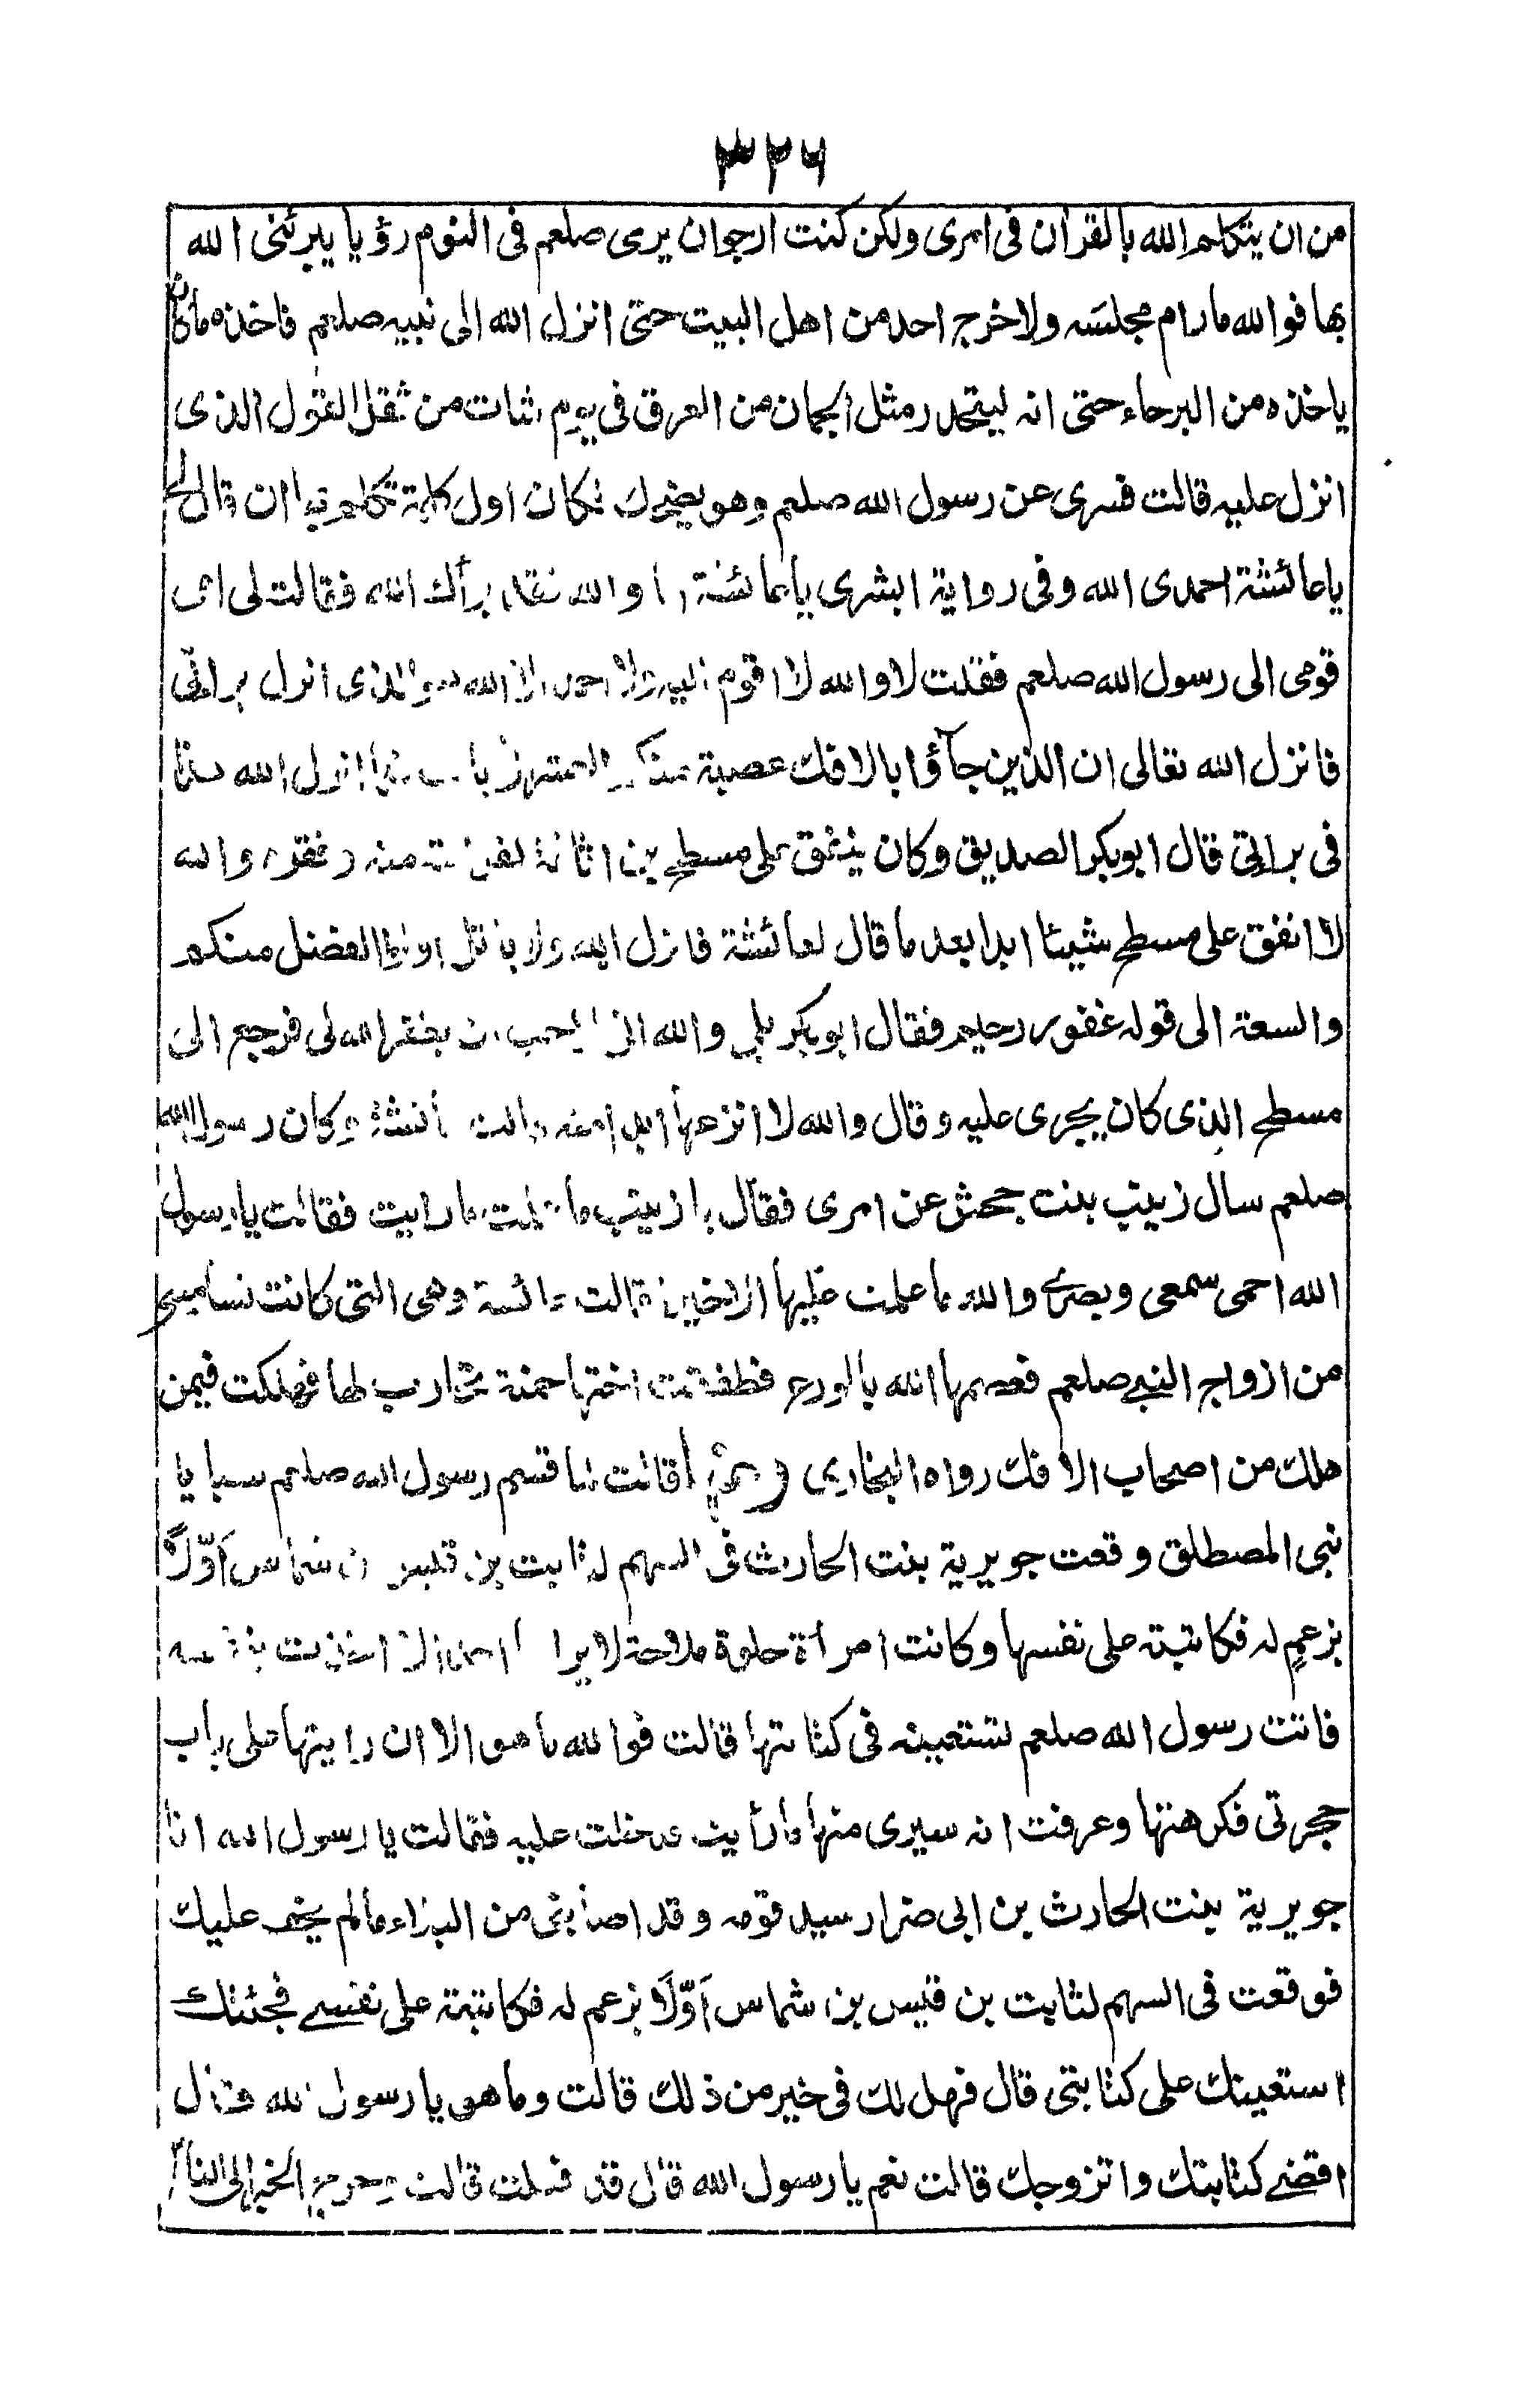 ٣٢٦
من ان يتكلم الله بالقرآن فى امرى ولكن كنت ارجوان يرى صلعم فى النوم رؤيا يبرئنى الله
بها فوالله مارام مجلسه ولا خرج احد من اهل البيت حتى انزل الله الى نبيه صلعم فاخذه ماكان
ياخذه من البرحاء حتى انه ليتحدر مثل الجمان من العرق فى يوم شات من ثقل القول الذى
انزل عليه قالت فسرى عن رسول الله صلعم وهو يضحك فكان اول كلمة تكلم بها ان قال لى
ياعائشة احمدى الله وفى رواية ابشرى ياعائشة اما والله فقد برأك الله فقالت لى امى
قومى الى رسول الله صلعم فقلت لا والله لا اقوم اليه ولا احمد الا الله هو الذى انزل برائتى
فانزل الله تعالى ان الذين جآؤا بالافك عصبة منكم العشر آيات انزل الله هذا
فى برائتى قال ابوبكر الصديق وكان ينفق على مسطح بن اثاثة لقرابته منه وفقره والله
لا انفق على مسطح شيئا ابدا بعد ما قال لعائشة فانزل الله ولا ياتل اولوا الفضل منكم
والسعة الى قوله غفور رحيم فقال ابوبكر بلى والله انى لاحب ان يغفر الله لى فرجع الى
مسطح الذى كان يجرى عليه وقال والله لا انزعها ابدا منه قالت عائشة وكان رسول الله
صلعم سال زينب بنت جحش عن امرى فقال يا زينب ما علمت ما رايت فقالت يا رسول
الله احمى سمعى وبصرى والله ما علمت عليها الا خيرا قالت عائشة وهى التى كانت تسامينى
من ازواج النبى صلعم فعصمها الله بالورع فطفقت اختها حمنة تحارب لها فهلكت فيمن
هلك من اصحاب الافك رواه البخارى قالت لما قسم رسول الله صلعم سبايا
بنى المصطلق وقعت جويرية بنت الحارث فى السهم لثابت بن قيس بن شماس اَوّلًا
بزعم له فكاتبته على نفسها وكانت امرأة حلوة ملاحة لا يراها احد الا اخذت بنفسه
فاتت رسول الله صلعم تستعينه فى كتابتها قالت فوالله ما هو الا ان رايتها على باب
حجرتى فكرهتها وعرفت انه سيرى منها ما رأيت فدخلت عليه فقالت يا رسول الله انا
جويرية بنت الحارث بن ابى ضرار سيد قومه وقد اصابنى من البلاء مالم يخف عليك
فوقعت فى السهم لثابت بن قيس بن شماس اَوّلًا بزعم له فكاتبته على نفسى فجئتك
استعينك على كتابتى قال فهل لك فى خير من ذلك قالت وما هو يا رسول الله قال
اقضى كتابتك واتزوجك قالت نعم يا رسول الله قال قد فعلت قالت وخرج الخبر الى الناس